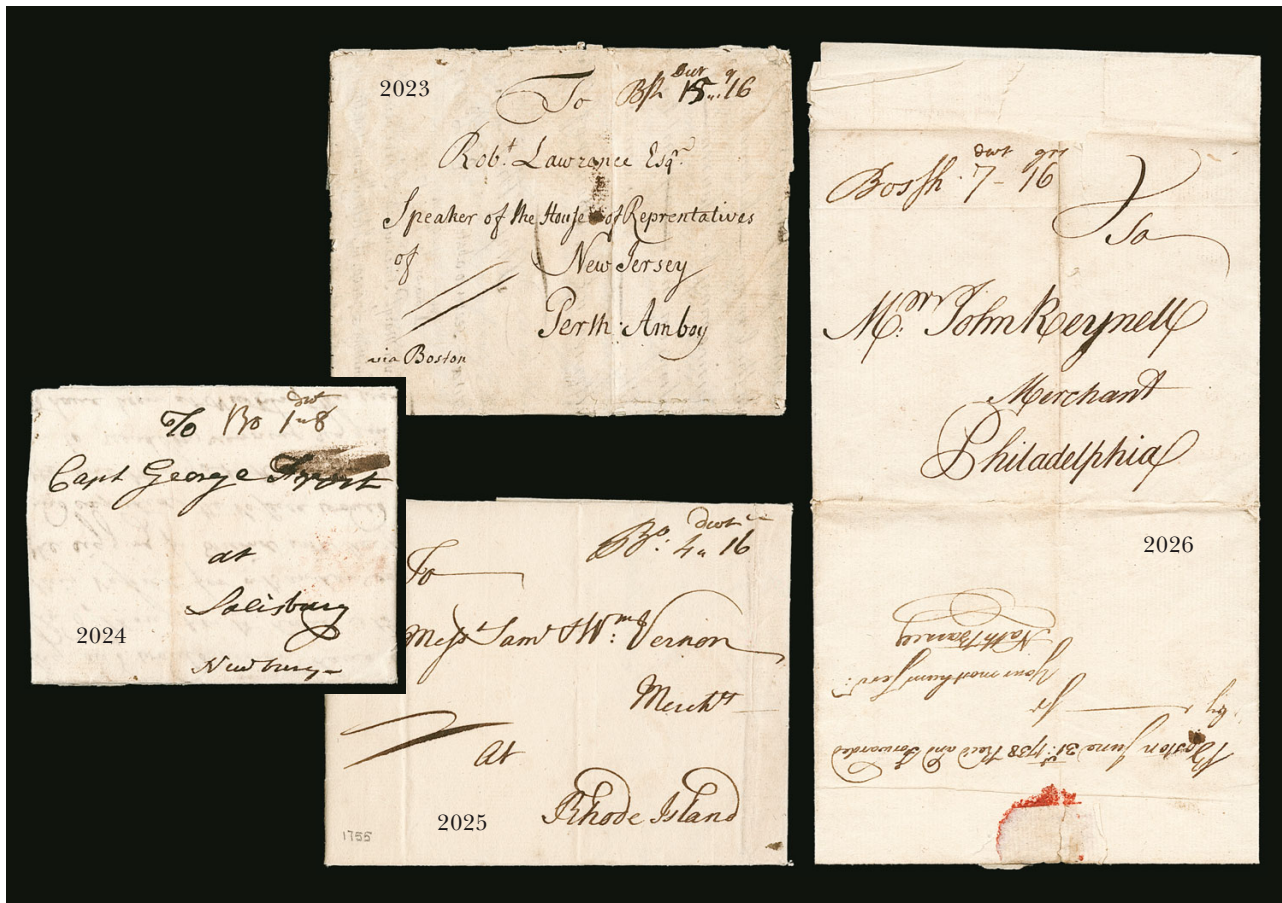 2023
To Bsh 15 16
Robt. Lawrance Esqr.
Speaker of the House of Reprentatives
of New Jersey
Perth Amboy
via Boston
2024
To Bo 1 8
dwt
Capt George Frost
at
Salisbury
Newbury
2025
dwt
Bo: 4 16
To
Messrs Saml & Wm: Vernon
Merchts
At
Rhode Island
1755
2026
dwt
Bossh. 7 - 16
To
Mr. John Reynell
Merchant
Philadelphia
Boston June 31st: 1738 Recd and Forwarded
by
Sr
Your most hum Servt: